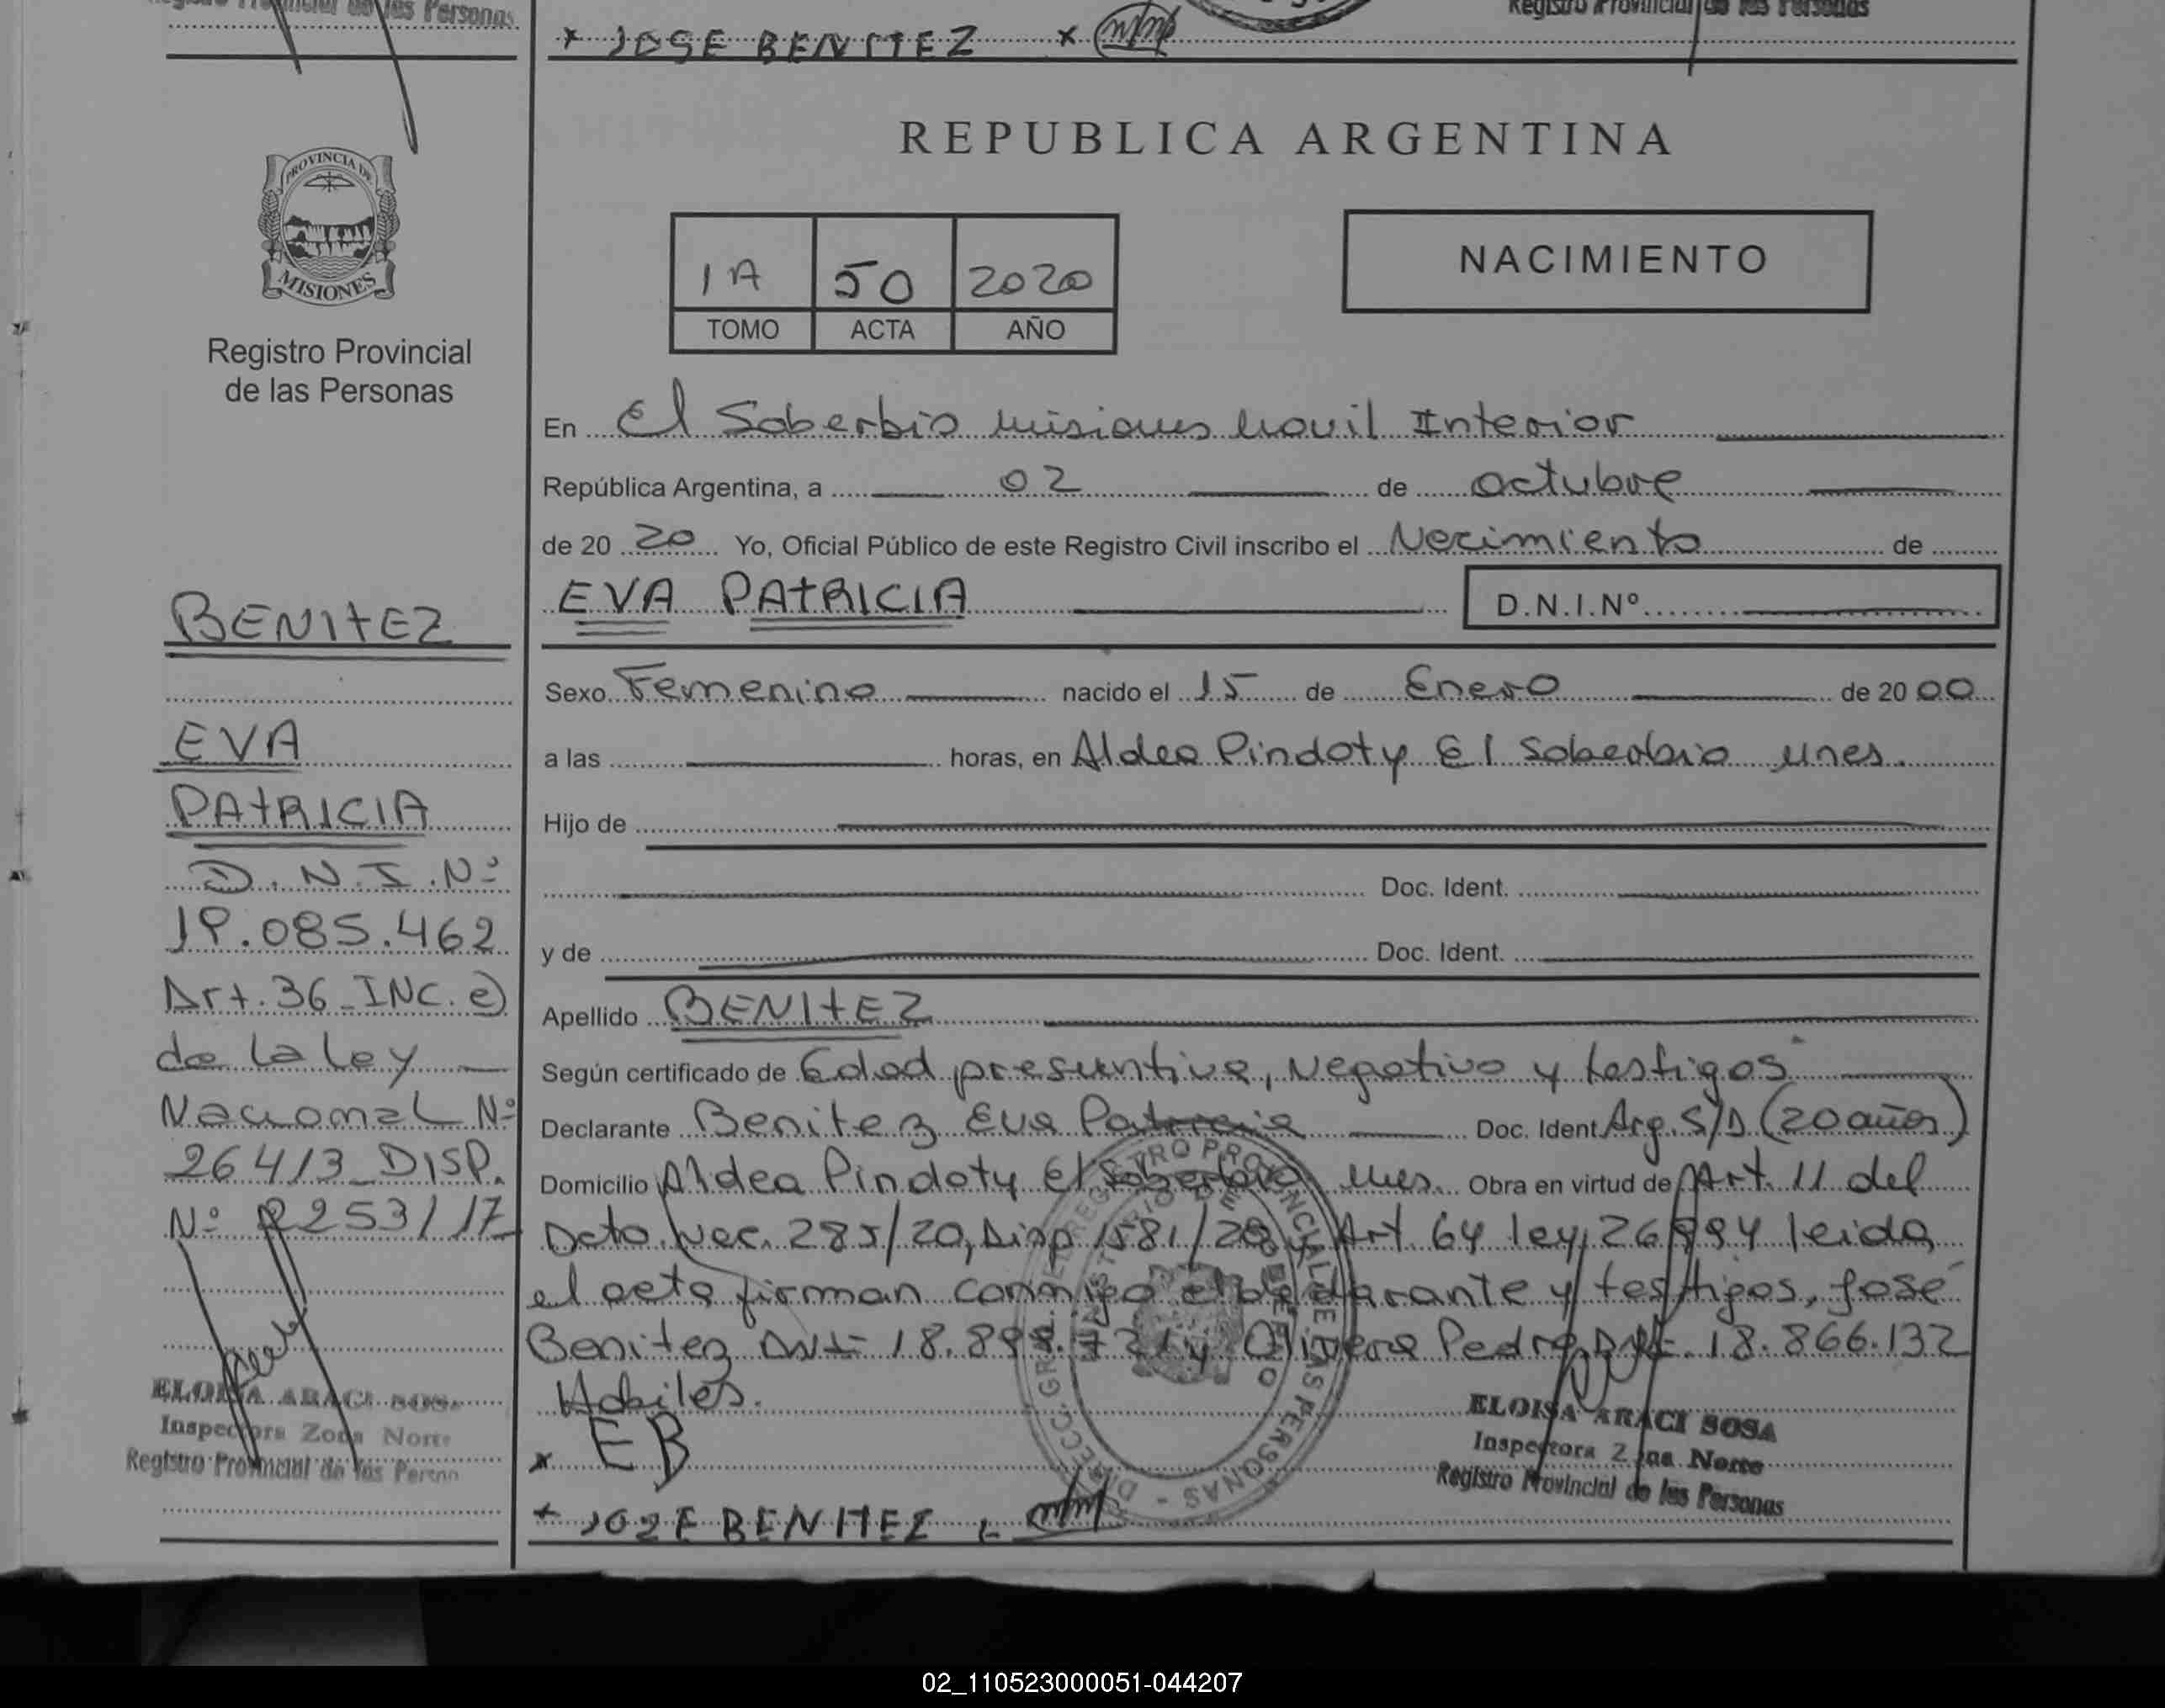 Registro Provincial de las Personas
Registro Provincial de las Personas
x JOSE BENITEZ x
PROVINCIA DE
MISIONES
Registro Provincial
de las Personas
BENITEZ
EVA
PATRICIA
D.N.I.Nº
19.085.462
Art.36_INC.e)
de la ley
Nacional Nº
26413_DISP.
Nº 2253/17
ELOISA ARACI SOSA
Inspectora Zona Norte
Registro Provincial de las Person
REPUBLICA ARGENTINA
1A 50 2020
TOMO ACTA AÑO
NACIMIENTO
En El Soberbio misiones movil Interior
República Argentina, a 02 de octubre
de 20 20 Yo, Oficial Público de este Registro Civil inscribo el Nacimiento de
EVA PATRICIA D.N.I.Nº
Sexo Femenino nacido el 15 de Enero de 20 00
a las horas, en Aldea Pindoty El Soberbio mnes.
Hijo de
Doc. Ident.
y de Doc. Ident.
Apellido BENITEZ
Según certificado de Edad presuntiva, Negativo y testigos
Declarante Benitez Eva Patricia Doc. Ident. Arg. S/D (20 años)
Domicilio Aldea Pindoty El Soberbio mnes. Obra en virtud de Art. 11 del
Dcto. Nac. 285/20, Disp 1581/20 y Art. 64 ley 26994 leida
el acta firman conmigo el declarante y testigos, José
Benitez DNI 18.898.721 y Olivera Pedro DNI. 18.866.132
Habiles.
x EB
+ JOSE BENITEZ
ELOISA ARACI SOSA
Inspectora Zona Norte
Registro Provincial de las Personas
02_110523000051-044207